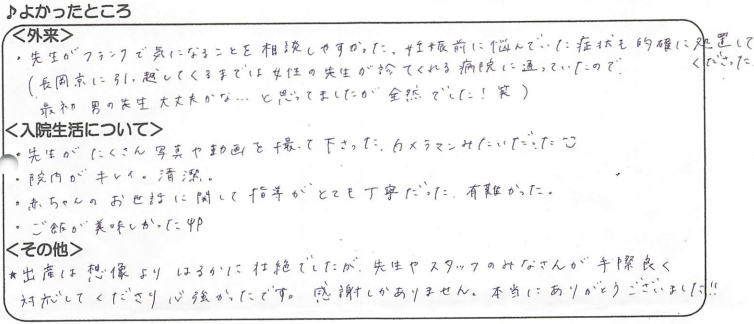 ♪よかったところ
<外来>
・先生がフランクで気になることを相談しやすかった。妊娠前に悩んでいた症状も的確に処置して
くださった
(長岡京に引っ越してくるまでは女性の先生が診てくれる病院に通っていたので
最初 男の先生大丈夫かな…と思ってましたが全然でした!笑)
<入院生活について>
・先生がたくさん写真や動画を撮って下さった。カメラマンみたいだった
・院内がキレイ。清潔。
・赤ちゃんのお世話に関して指導がとても丁寧だった。有難かった。
・ご飯が美味しかった
<その他>
*出産は想像よりはるかに壮絶でしたが、先生やスタッフのみなさんが手際良く
対応してくださり心強かったです。感謝しかありません。本当にありがとうございました!!